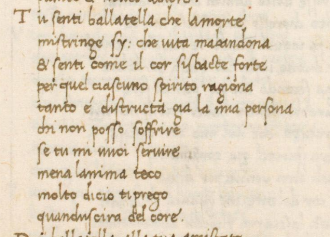 Tu senti ballatella che lamorte
mistringe sy: che vita mabandona
& senti come il cor sisbacte forte
per quel ciascuno spirito ragiona
tanto é distructa gia la mia persona
chi non posso soffrire
se tu mi vuoi servire
mena lanima teco
molto dicio tiprego
quanduscira del core.